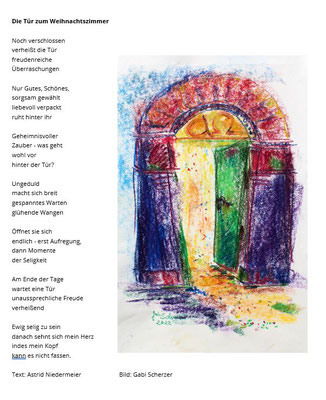 Die Tür zum Weihnachtszimmer
Noch verschlossen
verheißt die Tür
freudenreiche
Überraschungen
Nur Gutes, Schönes,
sorgsam gewählt
liebevoll verpackt
ruht hinter ihr
Geheimnisvoller
Zauber - was geht
wohl vor
hinter der Tür?
Ungeduld
macht sich breit
gespanntes Warten
glühende Wangen
Öffnet sie sich
endlich - erst Aufregung,
dann Momente
der Seligkeit
Am Ende der Tage
wartet eine Tür
unaussprachliche Freude
verheißend
Ewig selig zu sein
danach sehnt sich mein Herz
indes mein Kopf
kann es nicht fassen.
Text: Astrid Niedermeier
Bild: Gabi Scherzer
2022